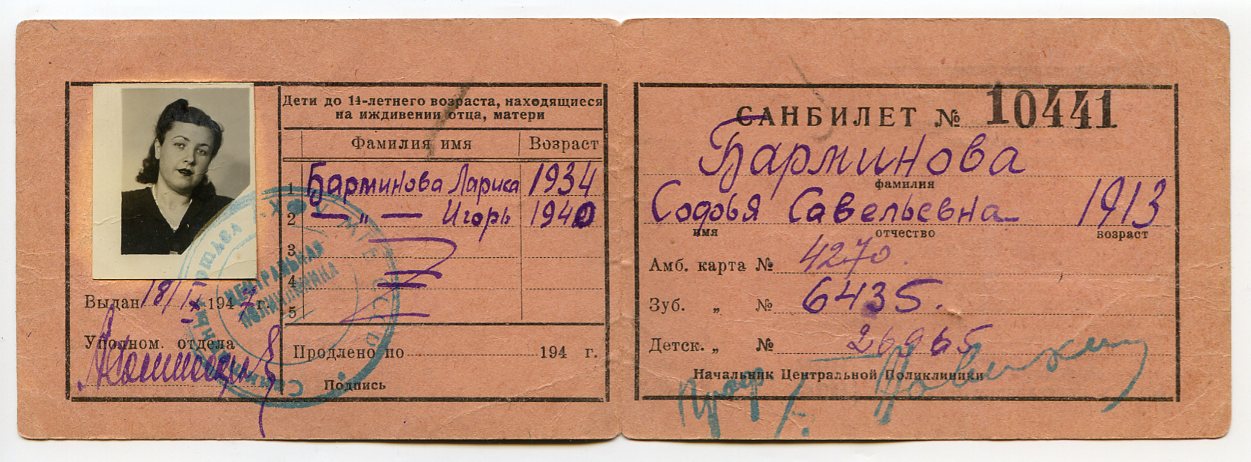 Дети до 14-летнего возраста, находящиеся
на иждивении отца, матери
Фамилия имя Возраст
1 Барминова Лариса 1934
2 — " — Игорь 1940
3
4
5
Выдан 18/IX 1947 г.
Уполном. отдела
Продлено по 194 г.
Подпись
ЦЕНТРАЛЬНАЯ
ПОЛИКЛИНИКА
САНБИЛЕТ № 10441
Барминова
фамилия
Софья Савельевна 1913
имя отчество возраст
Амб. карта № 4270.
Зуб. „ № 6435.
Детск. „ № 26965
Начальник Центральной Поликлиники